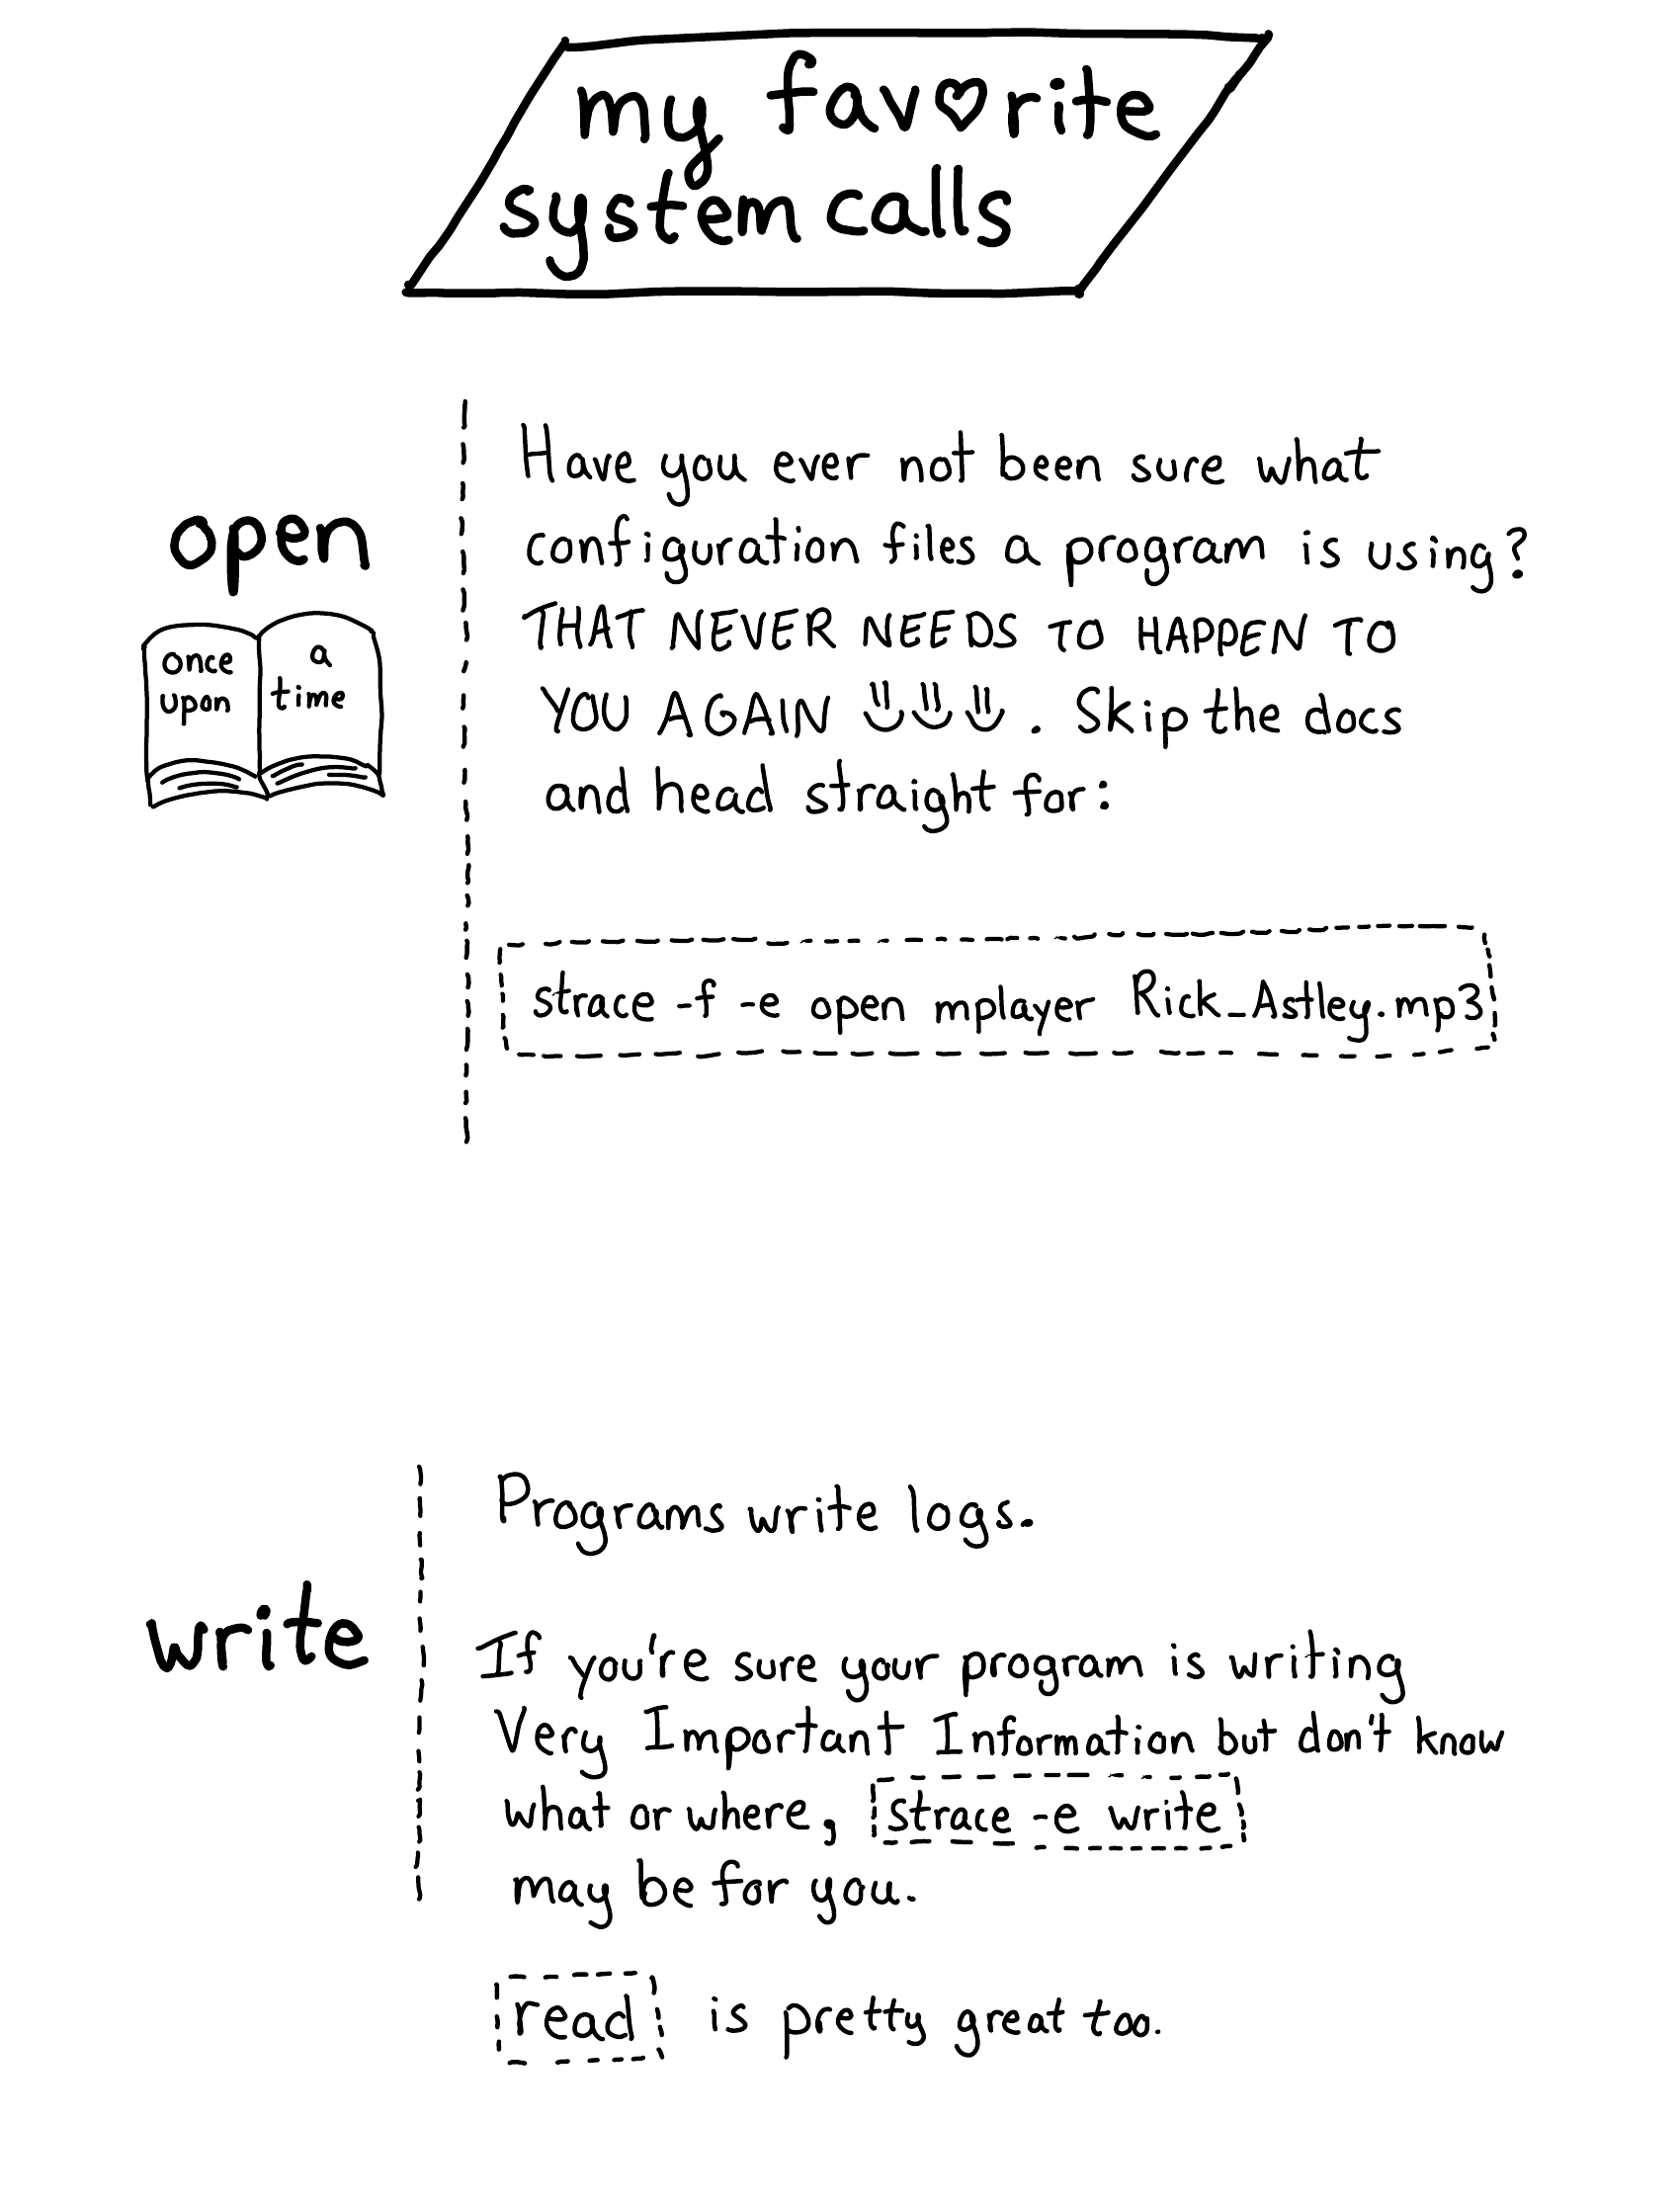 my fav♡rite
system calls
open
once
upon
a
time
Have you ever not been sure what
configuration files a program is using?
THAT NEVER NEEDS TO HAPPEN TO
YOU AGAIN . Skip the docs
and head straight for:
strace -f -e open mplayer Rick_Astley.mp3
write
Programs write logs.
If you're sure your program is writing
Very Important Information but don't know
what or where, strace -e write
may be for you.
read is pretty great too.